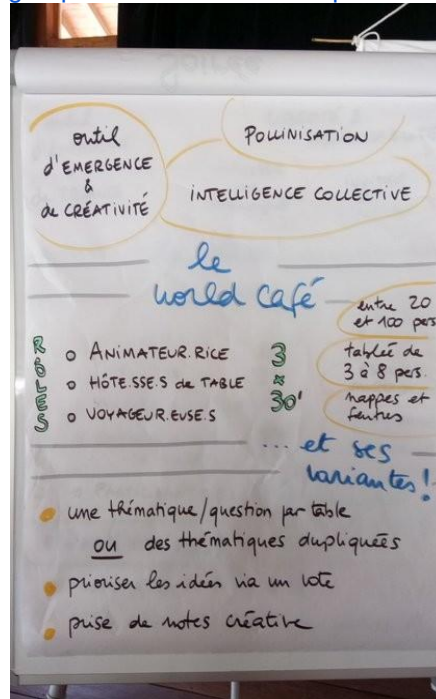 outil
d'EMERGENCE
&
de CRÉATIVITÉ
POLLINISATION
INTELLIGENCE COLLECTIVE
le
world café
entre 20
et 100 pers
tablée de
3 à 8 pers.
nappes et
feutres
RÔLES
o ANIMATEUR.RICE
o HÔTE.SSE.S de TABLE
o VOYAGEUR.EUSE.S
3
×
30'
... et ses
variantes !
une thématique/question par table
ou des thématiques dupliquées
prioriser les idées via un vote
prise de notes créative